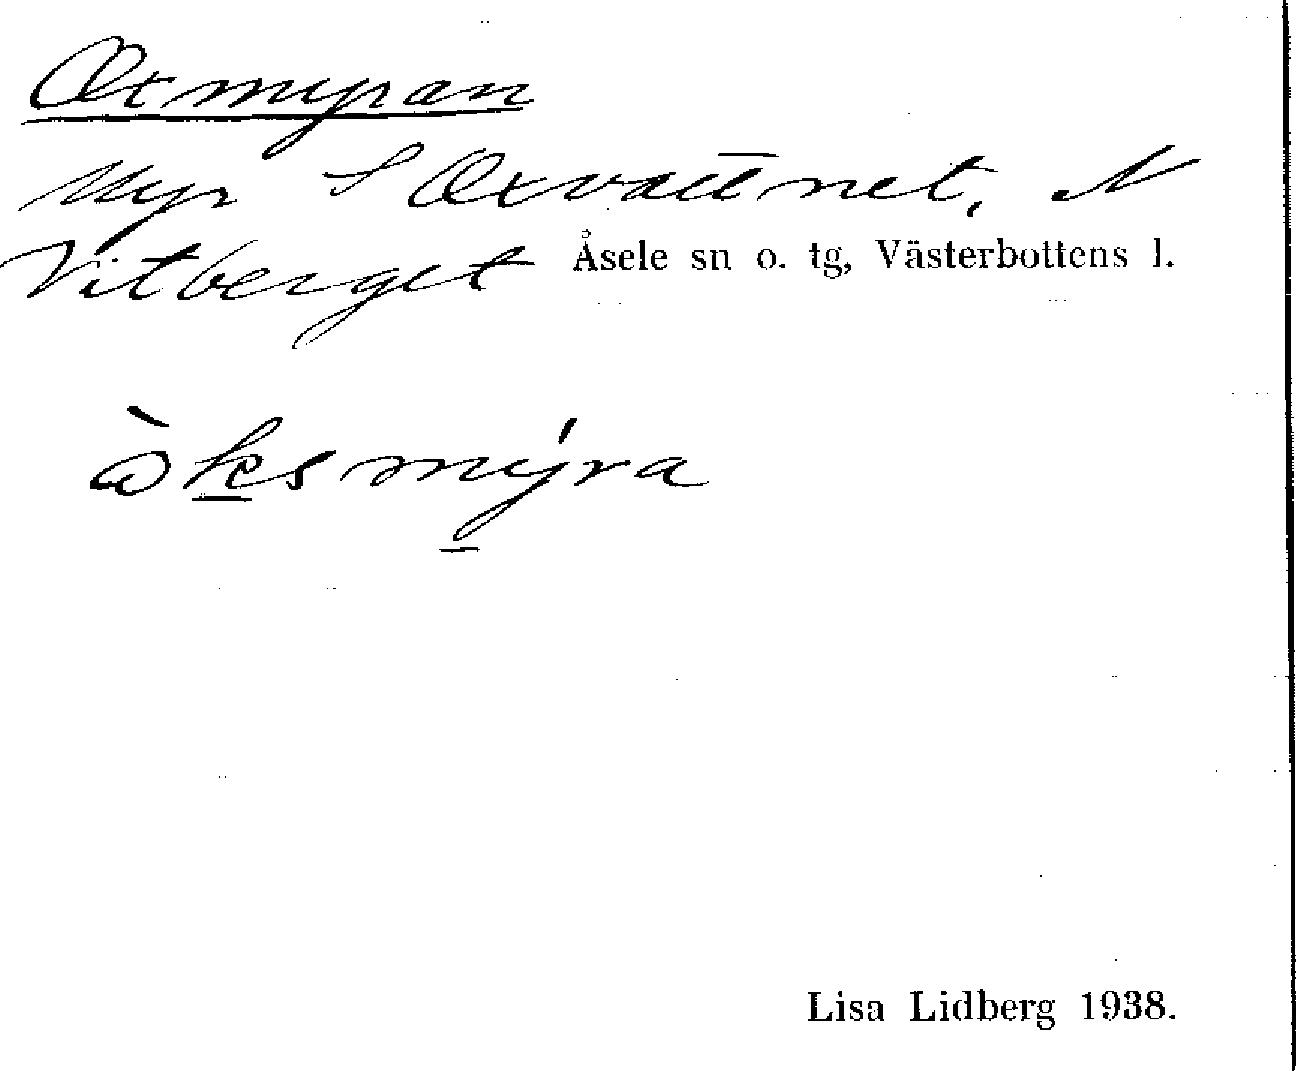 Oxmyran
Myr S Oxvattnet, N
Vitberget Åsele sn o. tg, Västerbottens l.
ò̀ksmýra
Lisa Lidberg 1938.